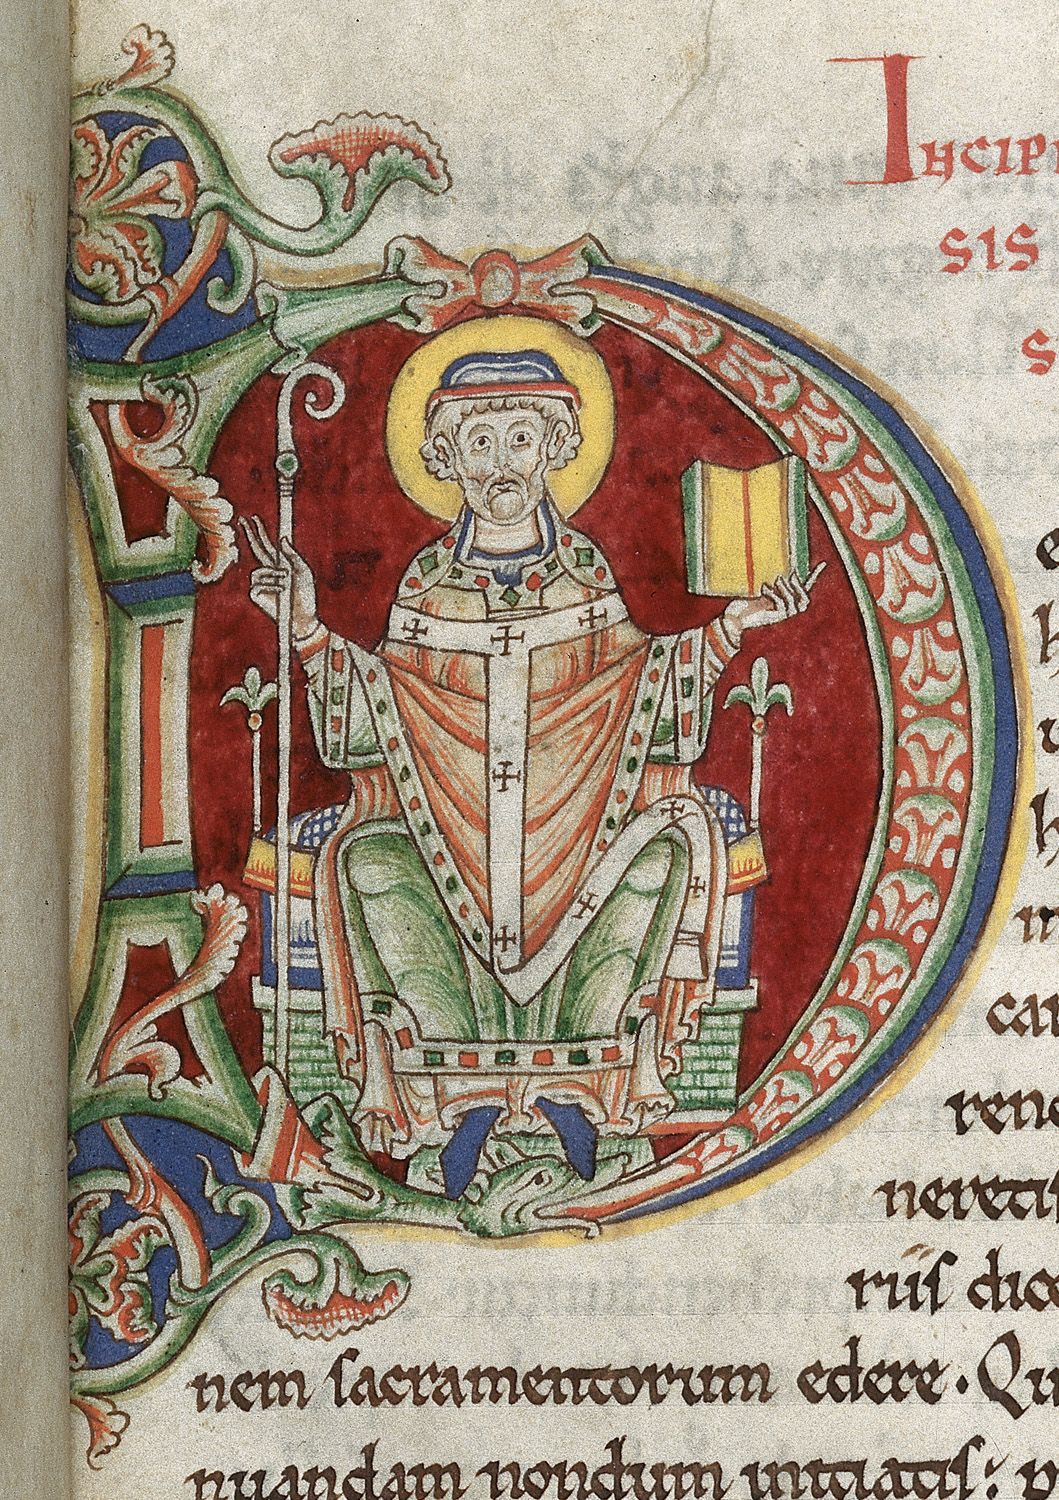 INCIP
SIS
S
ca
ren
neret
riis dic
nem sacramentorum edere. Qu
nuandam nondum initiatis: